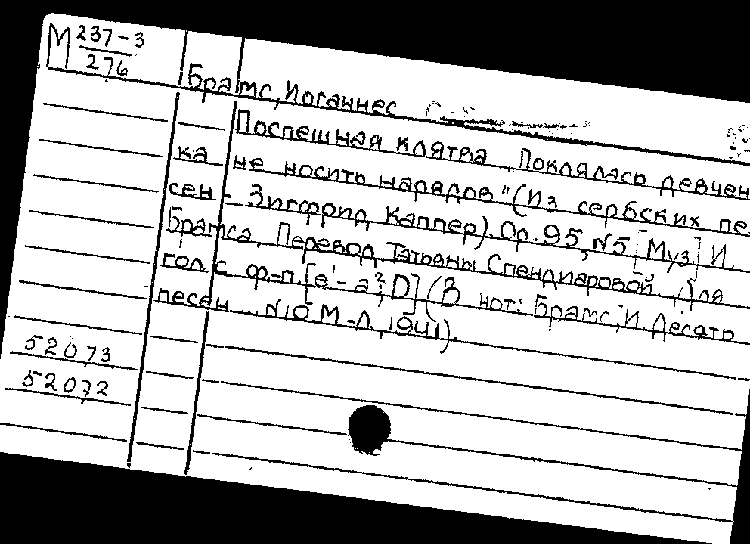 М 237-3
276
Брамс, Иоганнес
Поспешная клятва „Поклялась девчен
ка не носить нарядов" (Из сербских пе
сен - Зигфрид Каппер). Ор. 95, №5 [Муз.] И.
Брамса. Перевод Татьяны Спендиаровой. Для
гол. с ф.-п. [e'- a², D] (В нот: Брамс, И. Десять
песен... №10 М.-Л., 1941).
52073
52072